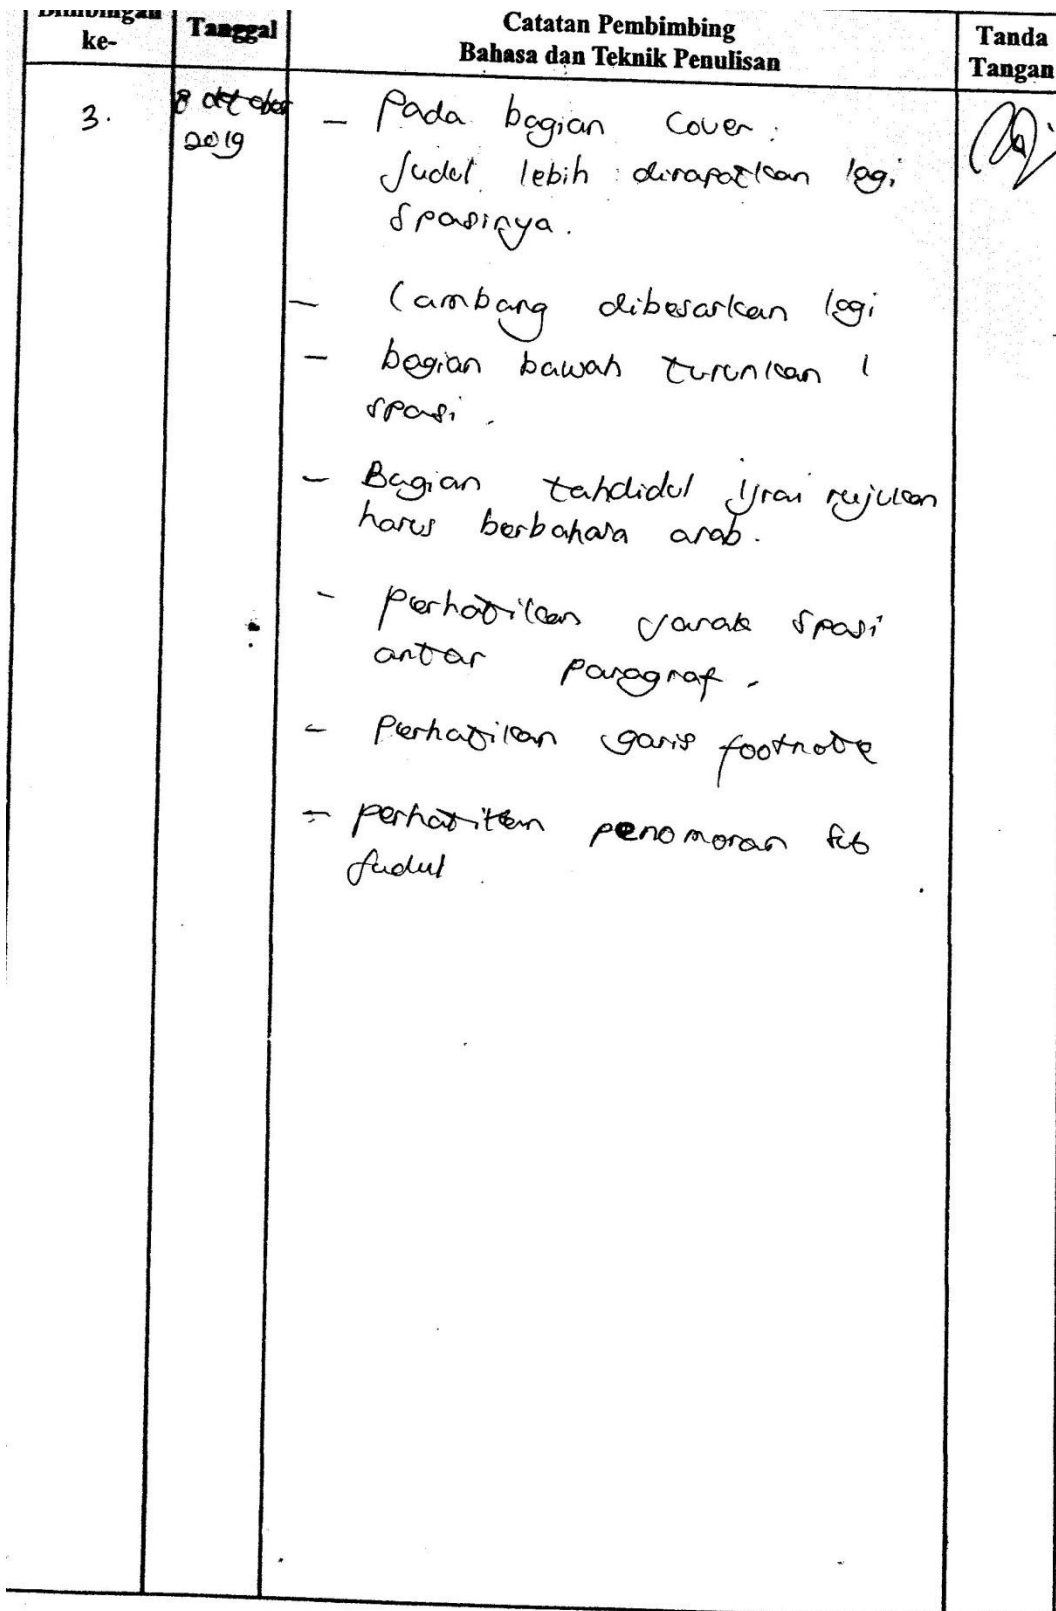 Bimbingan
ke-
Tanggal
Catatan Pembimbing
Bahasa dan Teknik Penulisan
Tanda
Tangan
3.
8 oktober
2019
- Pada bagian cover :
Judul lebih dirapatkan lagi
spasinya.
- Lambang dibesarkan lagi
- bagian bawah turunkan 1
spasi.
- Bagian tahdidul ijrai rujukan
harus berbahasa arab.
- perhatikan jarak spasi
antar paragraf.
- Perhatikan garis footnote
- perhatikan penomoran sub
judul